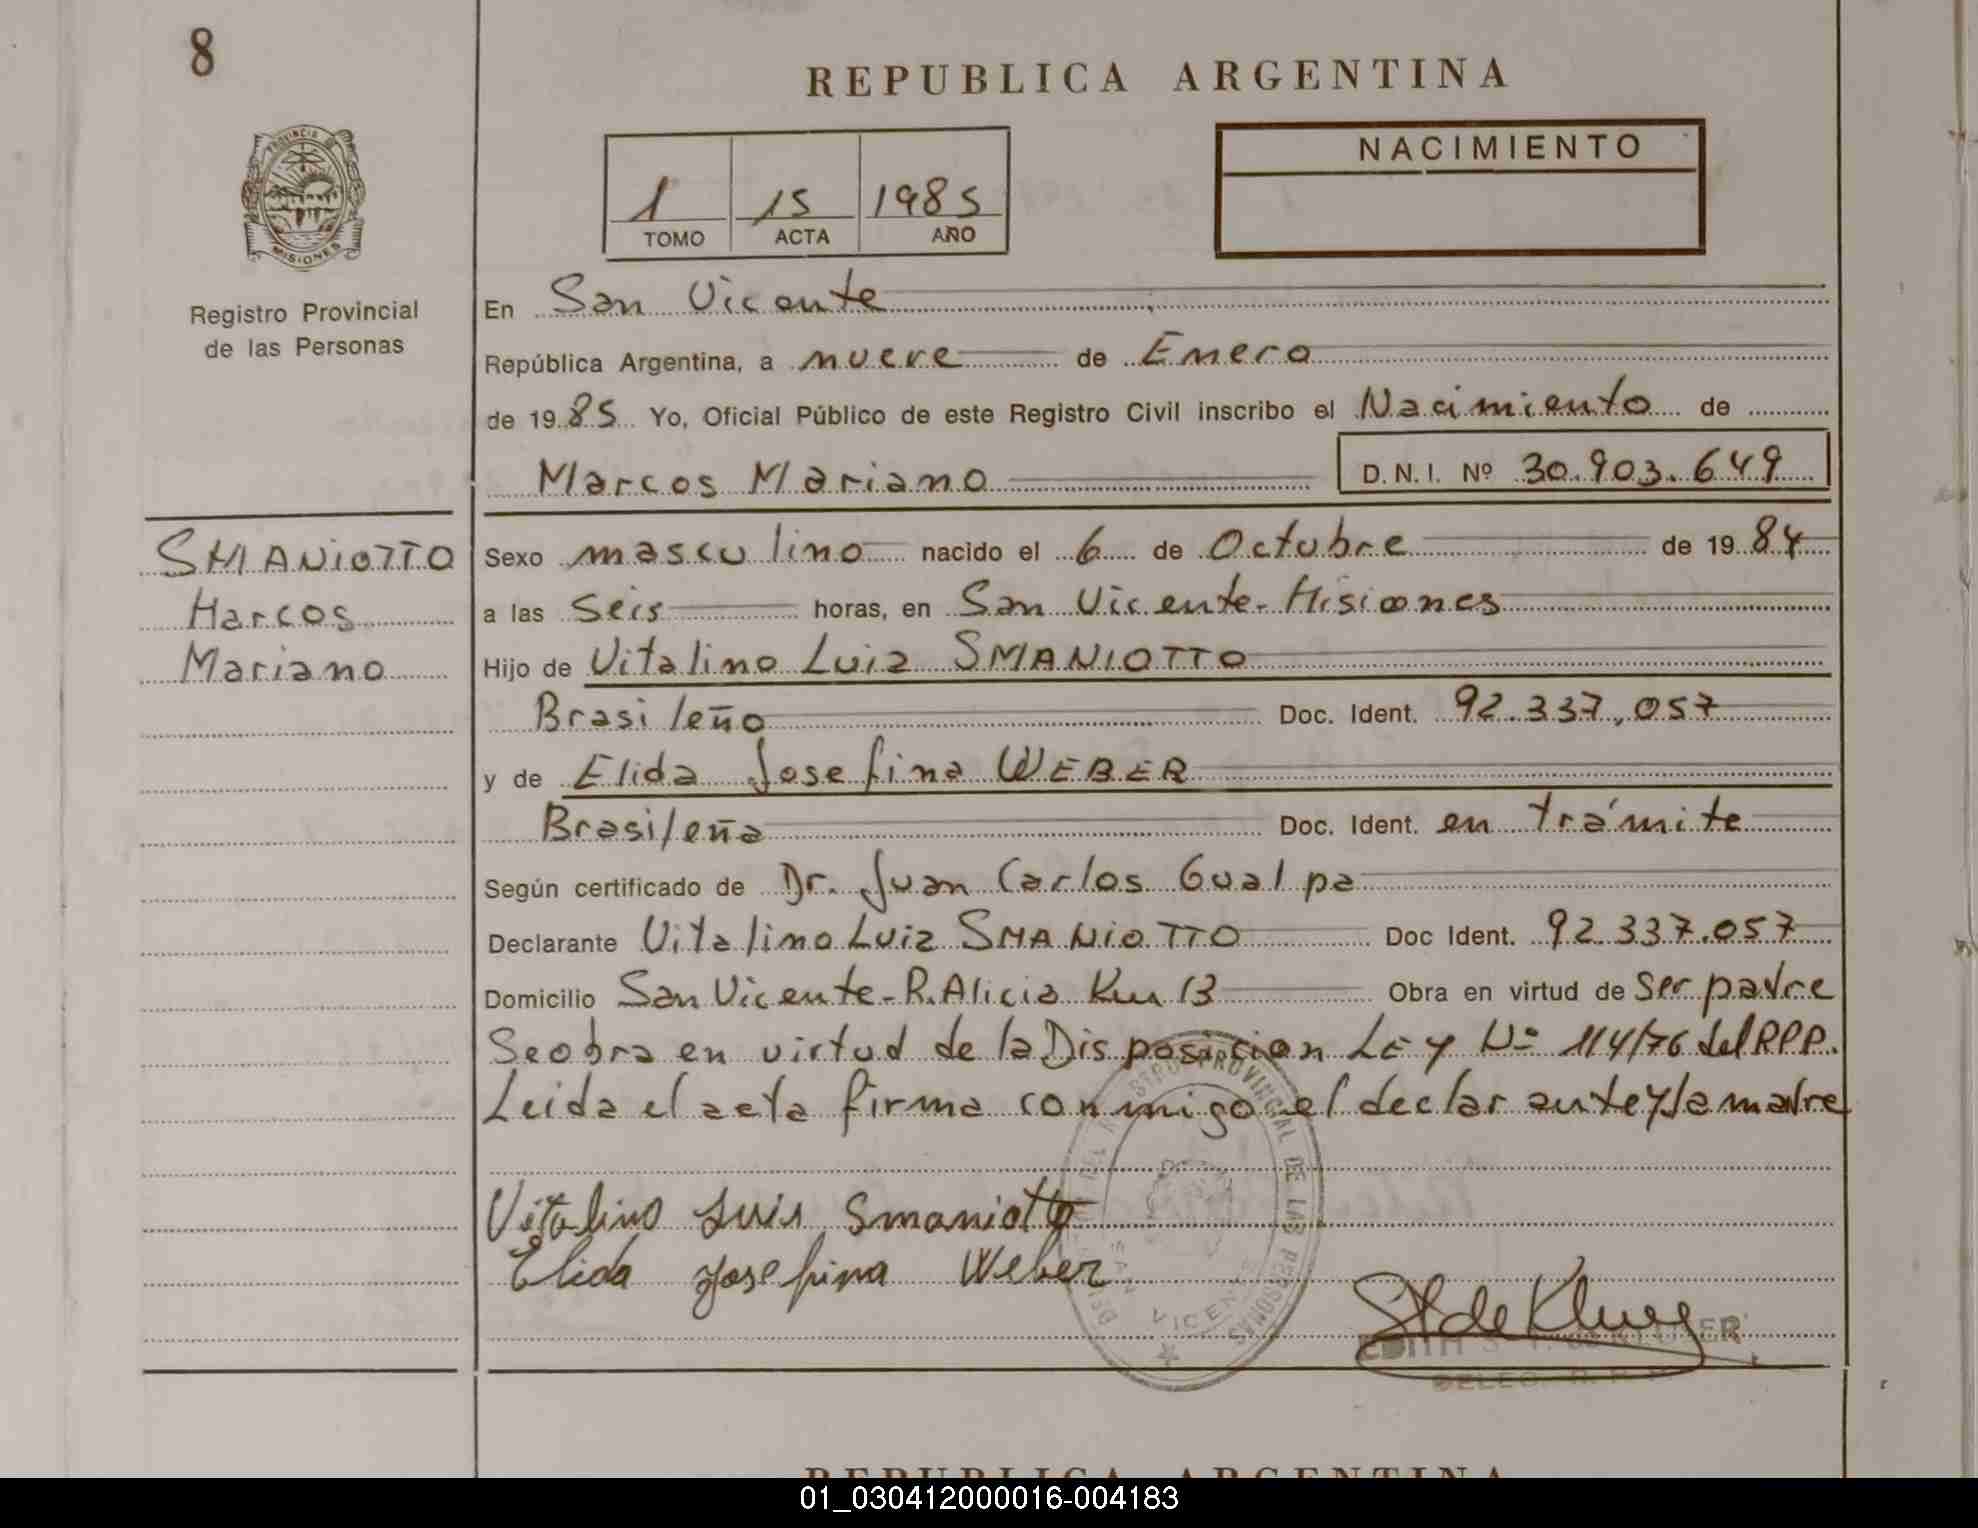 8
REPUBLICA ARGENTINA
PROVINCIA DE
MISIONES
Registro Provincial
de las Personas
1 15 1985
TOMO ACTA AÑO
NACIMIENTO
En San Vicente
República Argentina, a nueve de Enero
de 1985 Yo, Oficial Público de este Registro Civil inscribo el Nacimiento de
Marcos Mariano D.N.I. Nº 30.903.649
SMANIOTTO
Marcos
Mariano
Sexo masculino nacido el 6 de Octubre de 1984
a las seis horas, en San Vicente-Misiones
Hijo de Vitalino Luiz SMANIOTTO
Brasileño Doc. Ident. 92.337.057
y de Elida Josefina WEBER
Brasileña Doc. Ident. en trámite
Según certificado de Dr. Juan Carlos Gualpa
Declarante Vitalino Luiz SMANIOTTO Doc Ident. 92.337.057
Domicilio San Vicente-R.Alicia Km 13 Obra en virtud de ser padre
Se obra en virtud de la Disposicion LEY Nº 114/76 del RPP.
Leida el acta firma conmigo el declarante y la madre
Vitalino Luis Smaniotto
Elida Josefina Weber
PROVINCIAL DE LAS PERSONAS
SAN VICENTE
S de Kluser
EDITH S. de KLUSER
DELEG. R. P. P.
REPUBLICA ARGENTINA
01_030412000016-004183